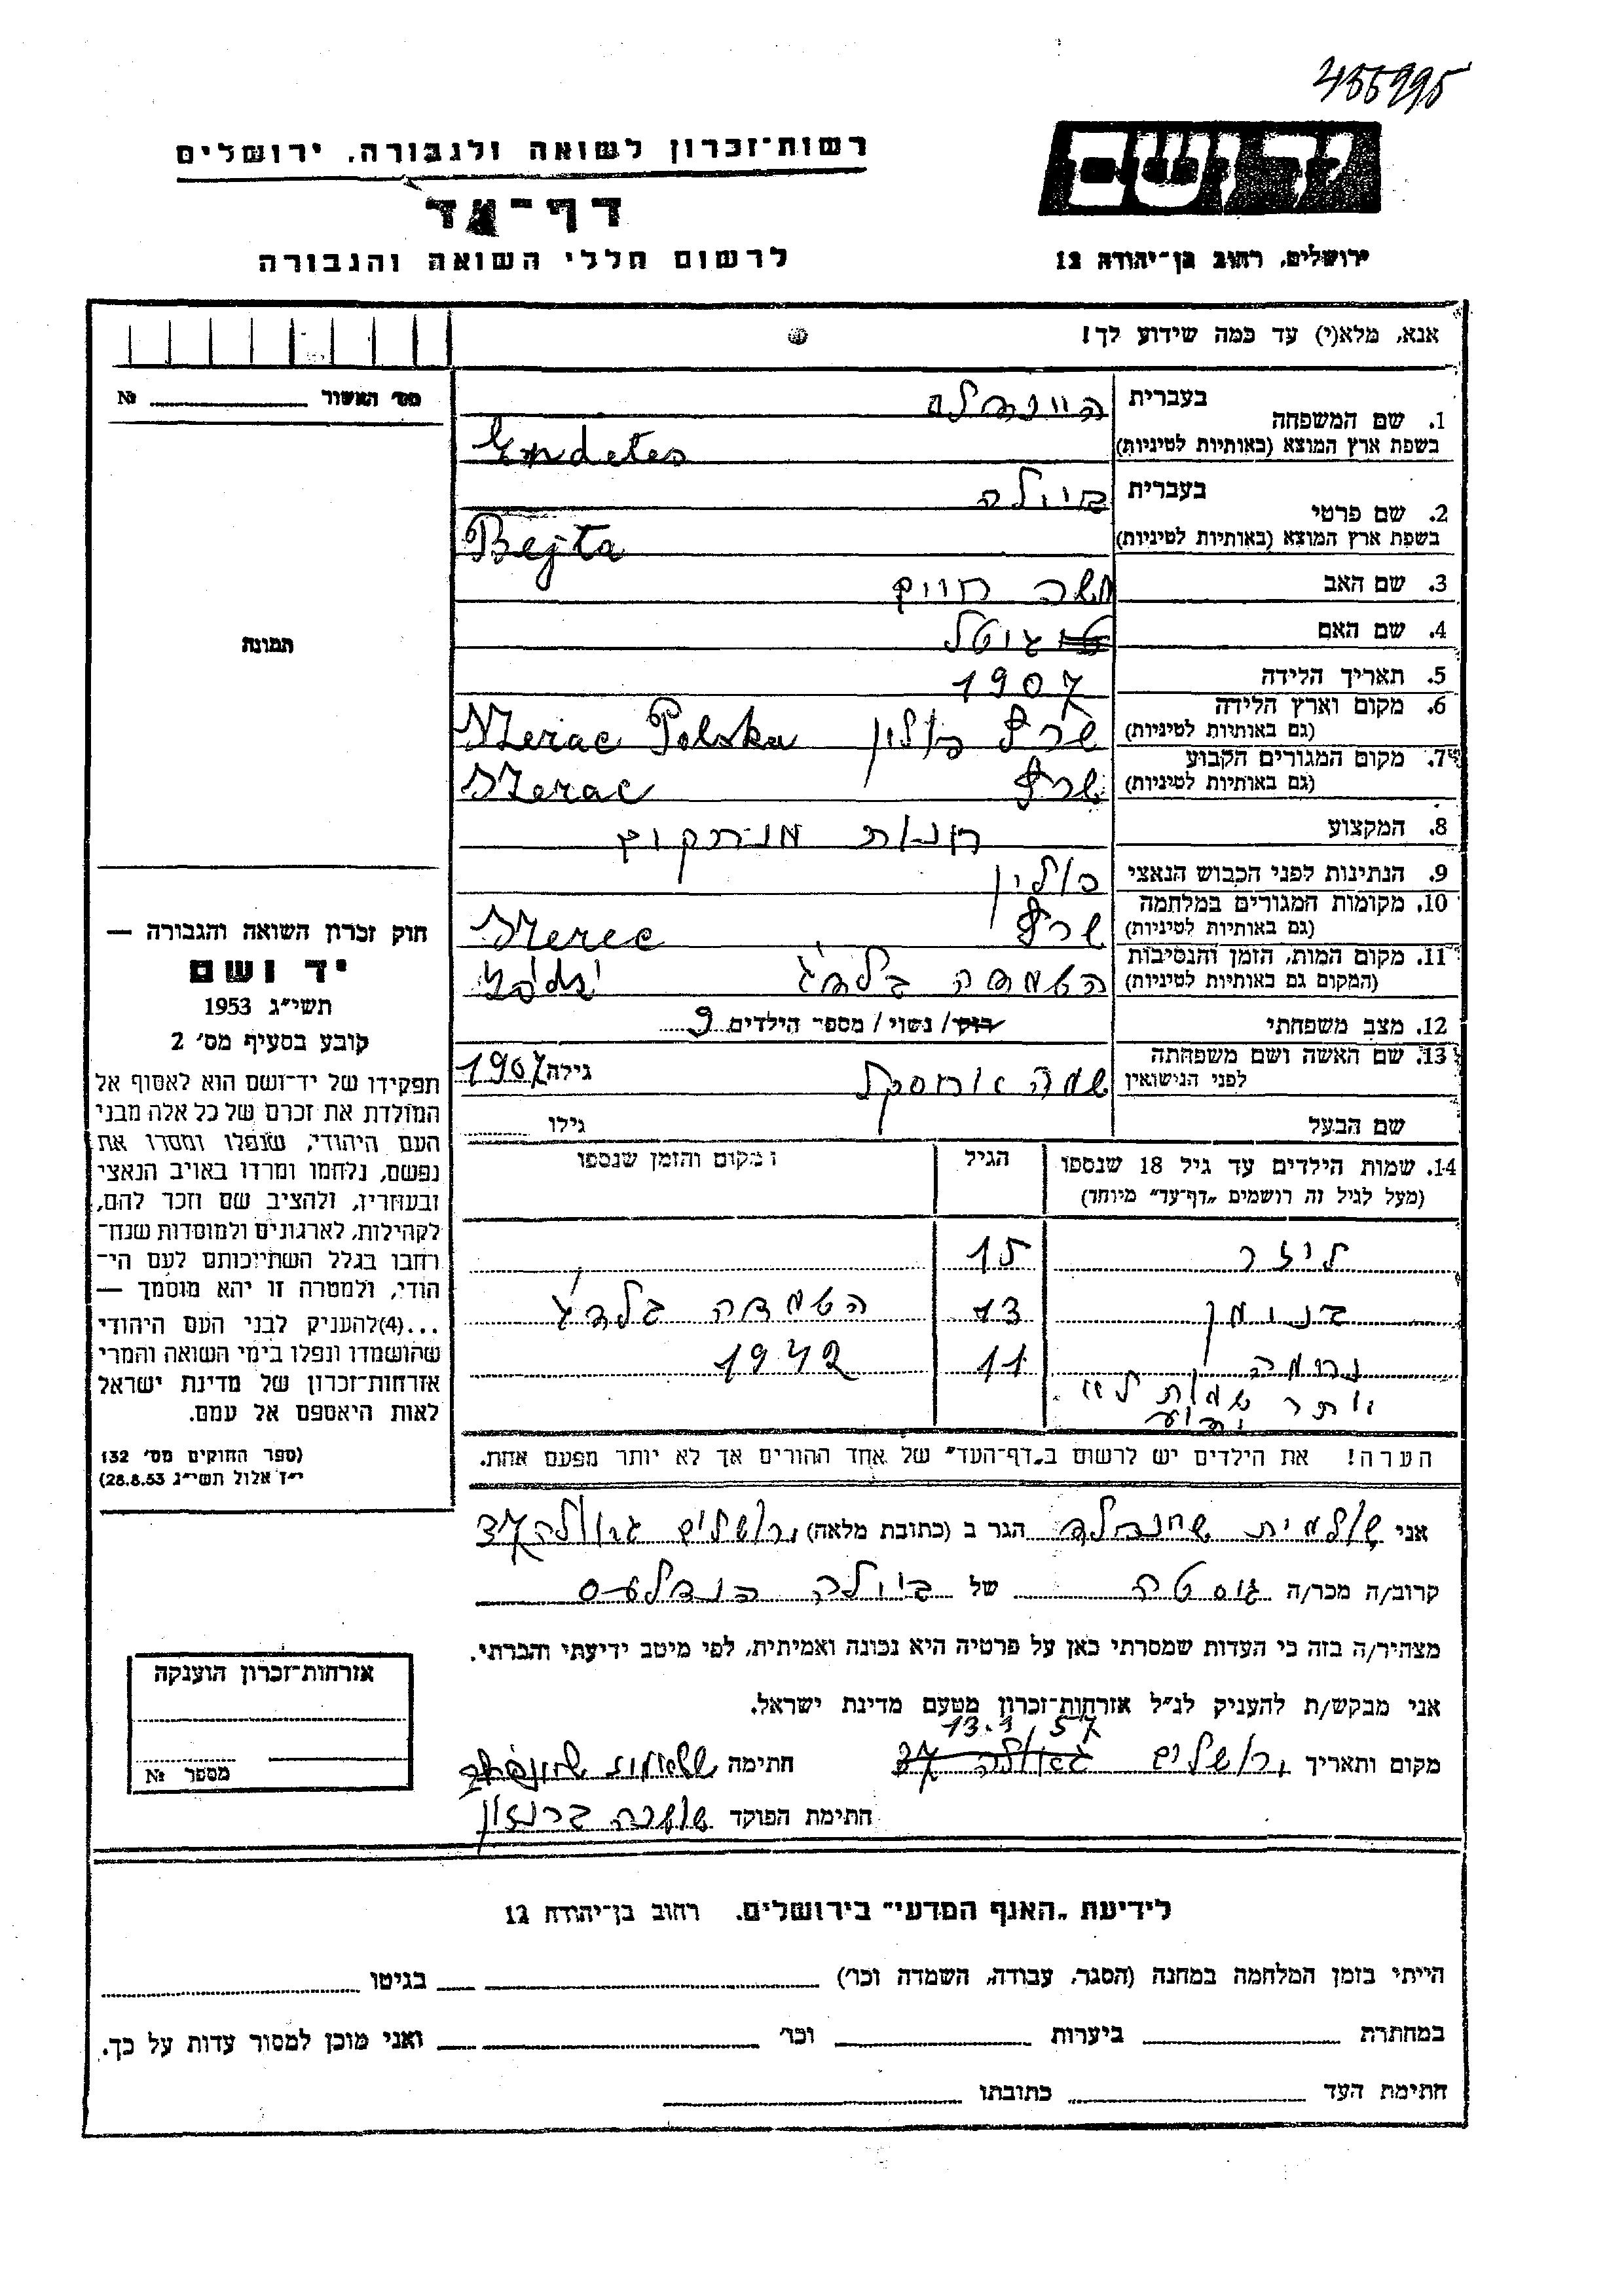 455995
רשות־זכרון לשואה ולגבורה, ירושלים
יד ושם
דף־עד
לרשום חללי השואה והגבורה
ירושלים, רחוב בן־יהודה 12
אנא, מלא(י) עד כמה שידוע לך!
מס' האשור №
תמונה
1. שם המשפחה בעברית
בשפת ארץ המוצא (באותיות לטיניות)
2. שם פרטי בעברית ביילה
בשפת ארץ המוצא (באותיות לטיניות) Bejta
3. שם האב משה חיים
4. שם האם גיטל
5. תאריך הלידה 1907
6. מקום וארץ הלידה
(גם באותיות לטיניות) פולין Polska
7. מקום המגורים הקבוע
(גם באותיות לטיניות)
8. המקצוע חנות
9. הנתינות לפני הכבוש הנאצי פולין
10. מקומות המגורים במלחמה
(גם באותיות לטיניות)
11. מקום המות, הזמן והנסיבות
(המקום גם באותיות לטיניות) השמדה
12. מצב משפחתי רוק/ נשוי/ מספר הילדים 9
13. שם האשה ושם משפחתה
לפני הנישואין גילה 1907
שם הבעל גילו
14. שמות הילדים עד גיל 18 שנספו הגיל מקום והזמן שנספו
(מעל לגיל זה רושמים „דף־עד” מיוחד)
15
13 השמדה
נחמה 11 1942
יותר שמות לא
ידוע
הערה! את הילדים יש לרשום ב„דף־העד” של אחד ההורים אך לא יותר מפעם אחת.
חוק זכרון השואה והגבורה —
יד ושם
תשי״ג 1953
קובע בסעיף מס' 2
תפקידו של יד־ושם הוא לאסוף אל
המולדת את זכרם של כל אלה מבני
העם היהודי, שנפלו ומסרו את
נפשם, נלחמו ומרדו באויב הנאצי
ובעוזריו, ולהציב שם וזכר להם,
לקהילות, לארגונים ולמוסדות שנח־
רבו בגלל השתייכותם לעם הי־
הודי, ולמטרה זו יהא מוסמך —
...(4)להעניק לבני העם היהודי
שהושמדו ונפלו בימי השואה והמרי
אזרחות־זכרון של מדינת ישראל
לאות היאספם אל עמם.
(ספר החוקים מס' 132
י״ז אלול תשי״ג 28.8.53)
אני שולמית הגר ב (כתובת מלאה) ירושלים גאולה 37
קרוב/ה מכר/ה של ביילה
מצהיר/ה בזה כי העדות שמסרתי כאן על פרטיה היא נכונה ואמיתית, לפי מיטב ידיעתי והכרתי.
אני מבקש/ת להעניק לנ״ל אזרחות־זכרון מטעם מדינת ישראל.
מקום ותאריך ירושלים גאולה 37 חתימה
חתימת הפוקד
אזרחות־זכרון הוענקה
מספר №
לידיעת „האגף המדעי” בירושלים. רחוב בן־יהודה 12
הייתי בזמן המלחמה במחנה (הסגר, עבודה, השמדה וכו') בגיטו
במחתרת ביערות וכו' ואני מוכן למסור עדות על כך.
חתימת העד כתובתו